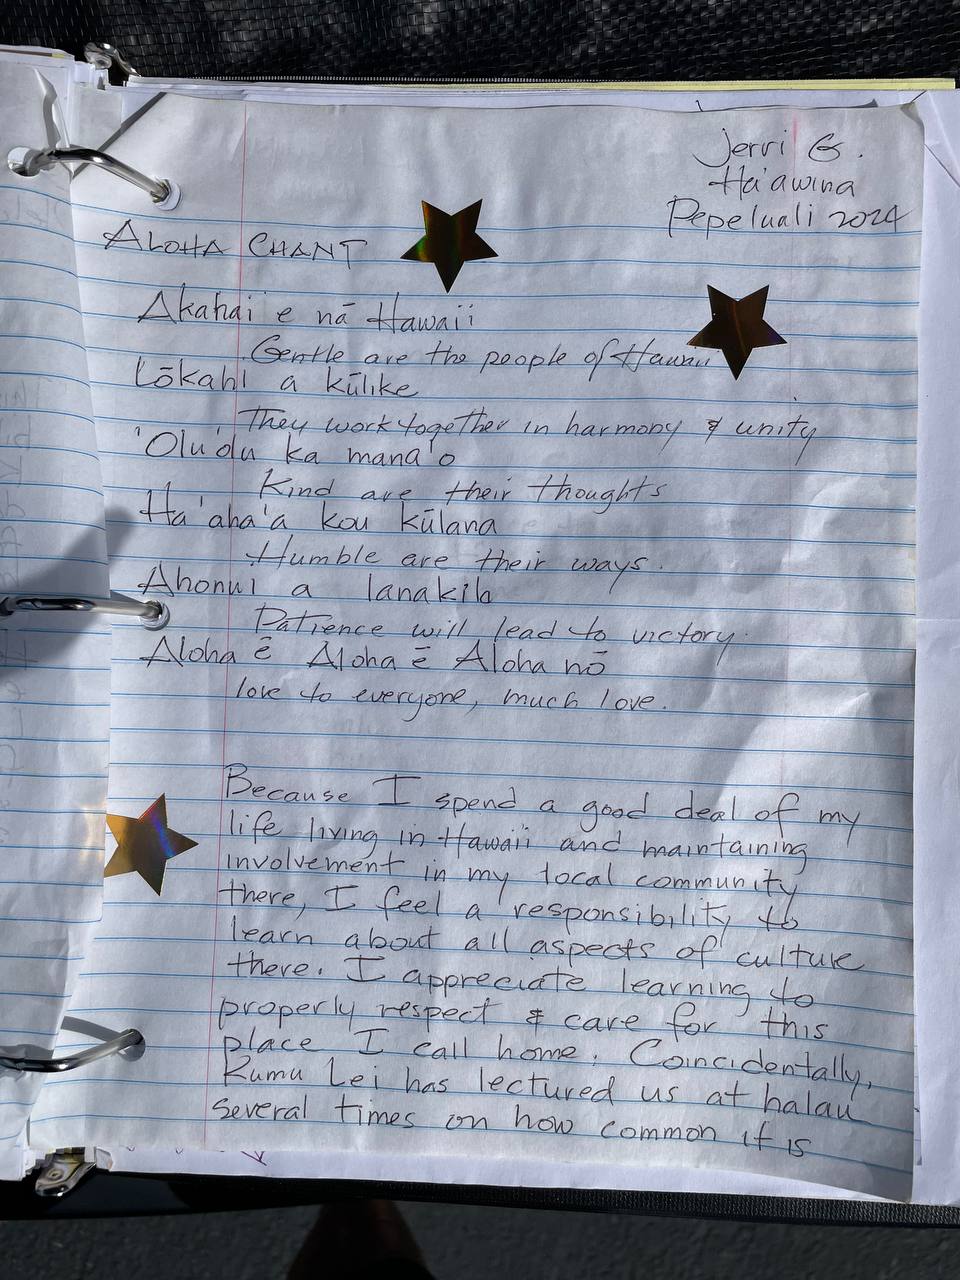 Jerri G.
Ha'awina
Pepeluali 2024
ALOHA CHANT
Akahai e nā Hawaii
Gentle are the people of Hawaii
Lōkahi a kūlike
They work together in harmony & unity
'Olu'olu ka mana'o
Kind are their thoughts
Ha'aha'a kou kūlana
Humble are their ways.
Ahonui a lanakila
Patience will lead to victory.
Aloha ē Aloha ē Aloha nō
love to everyone, much love.
Because I spend a good deal of my
life living in Hawaii and maintaining
involvement in my local community
there, I feel a responsibility to
learn about all aspects of culture
there. I appreciate learning to
properly respect & care for this
place I call home. Coincidentally,
Kumu Lei has lectured us at halau
several times on how common it is